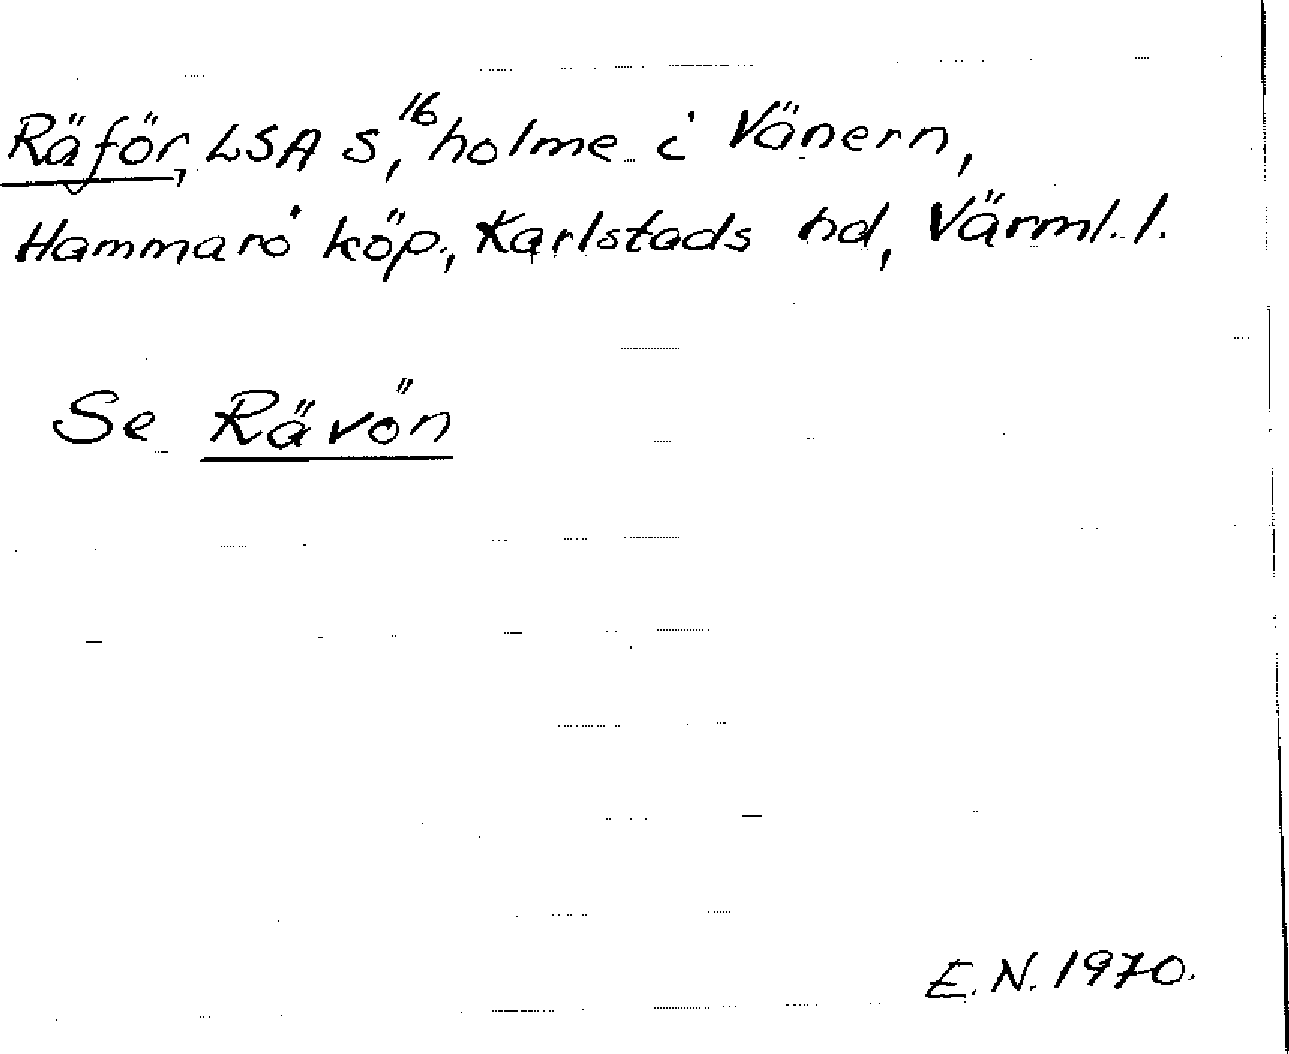 Räför, LSA S,¹⁶ holme i Vänern,
Hammarö köp., Karlstads hd, Värml. l.
Se Rävön
E.N. 1970.